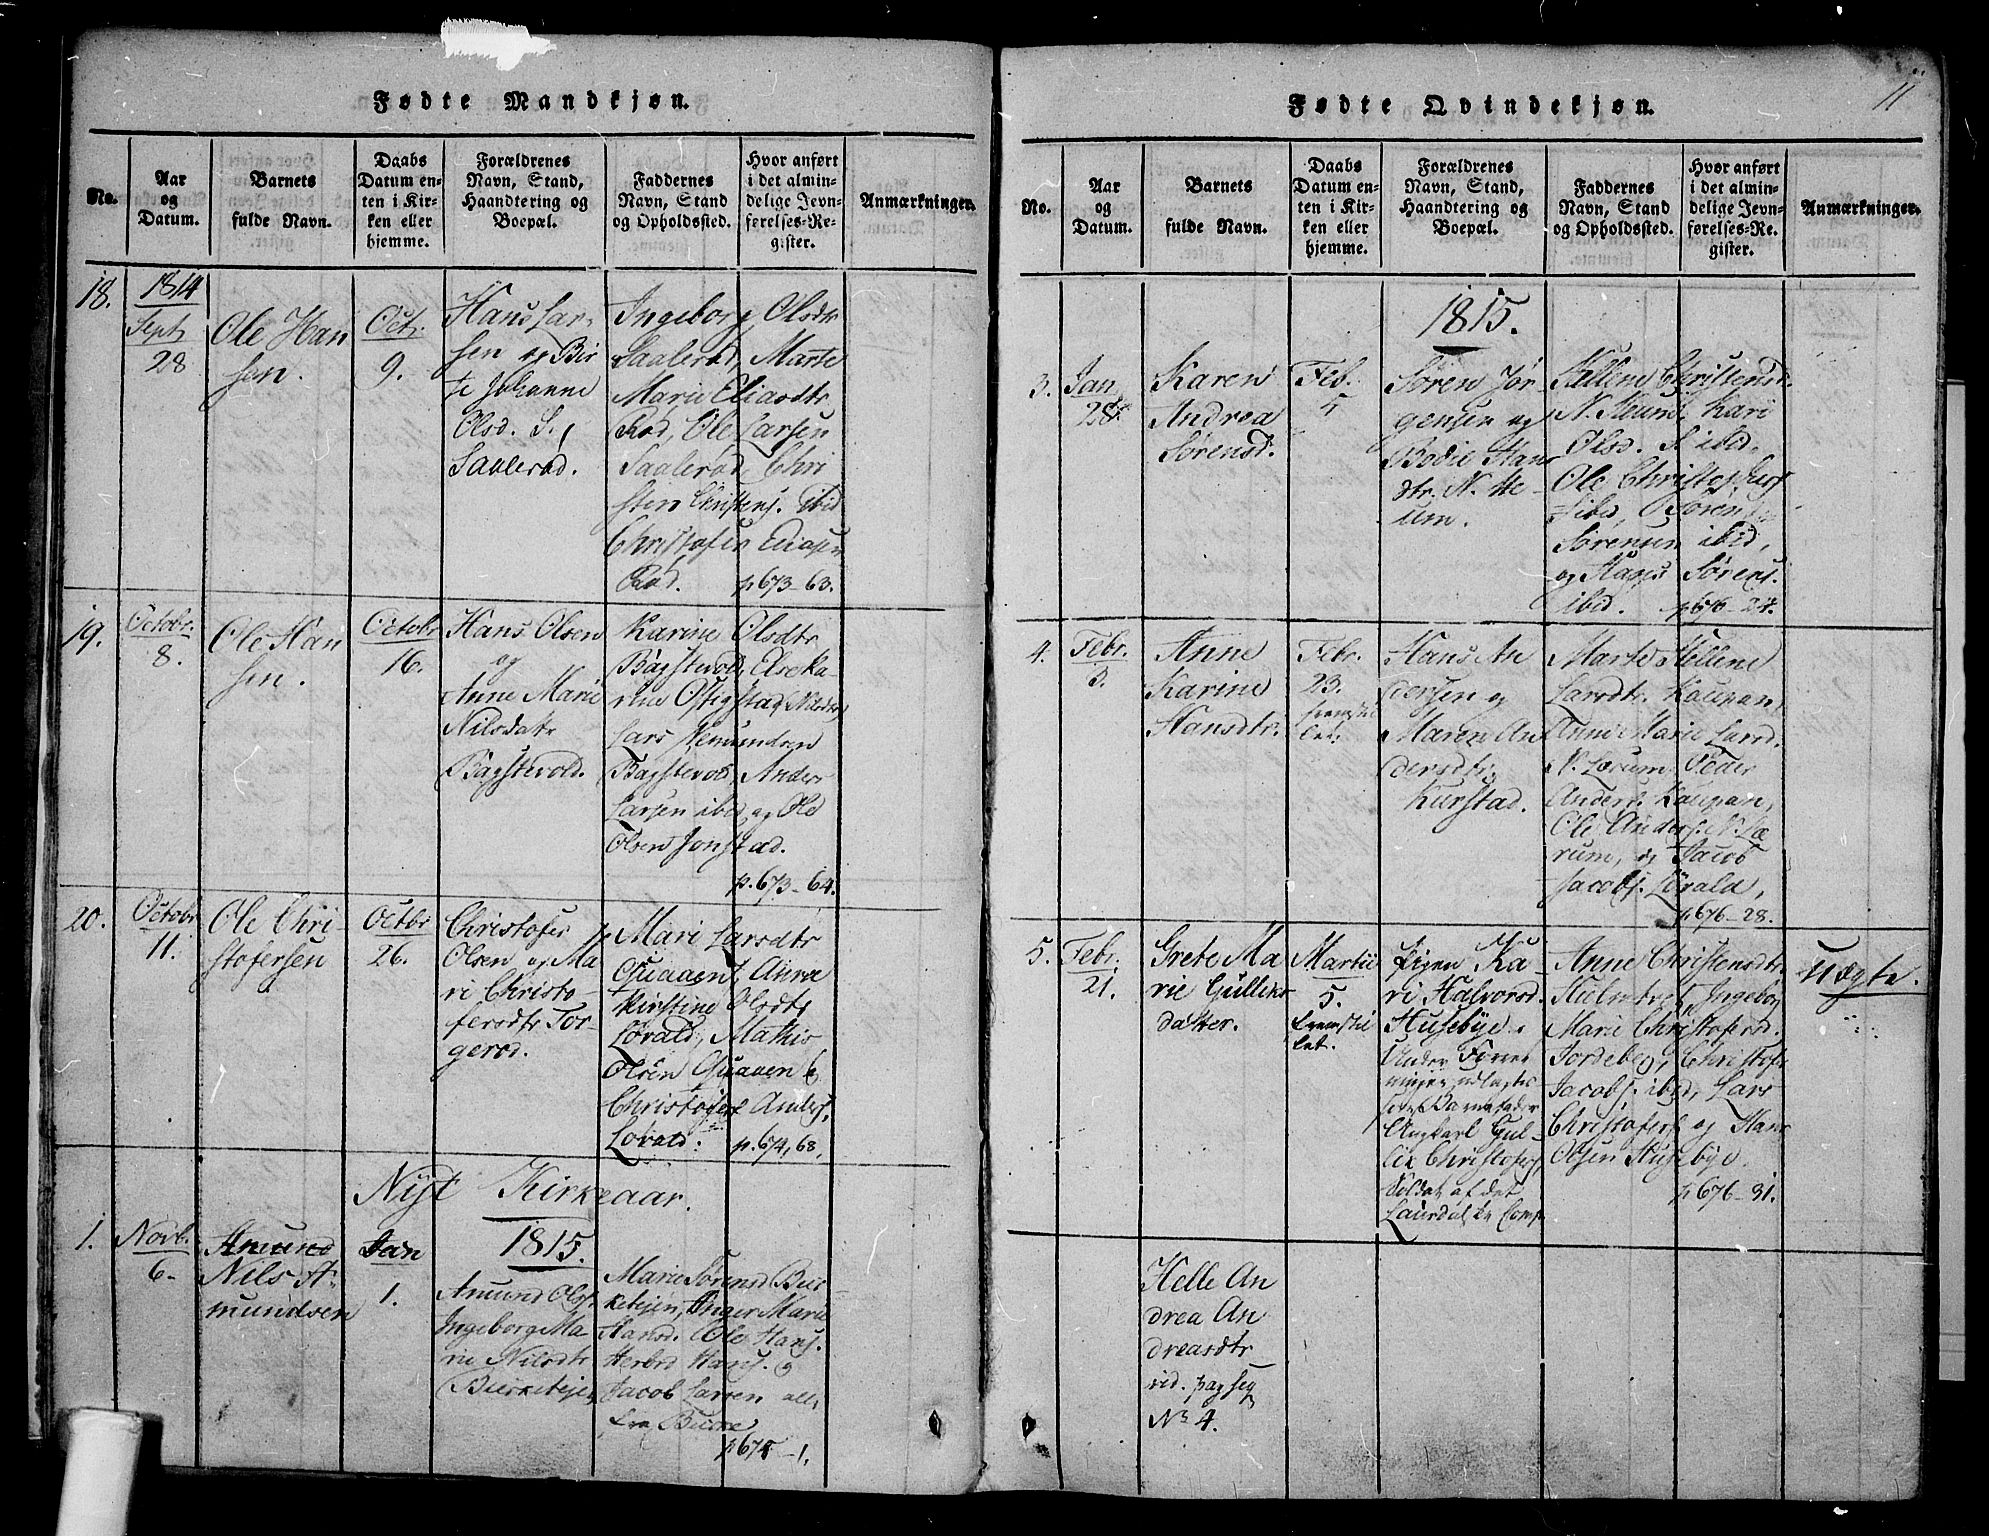 Fødte Mandkjøn.
No.
Aar
og
Datum.
Barnets
fulde Navn.
Daabs
Datum en-
ten i Kir-
ken eller
hjemme.
Forældrenes
Navn, Stand,
Haandtering og
Boepæl.
Faddernes
Navn, Stand
og Opholdssted.
Hvor anført
i det almin-
delige Jevn-
førelses-Re-
gister.
Anmærkninger.
18.
1814
Sept
28
Ole Han
sen.
Oct.
9.
Hans Lar-
sen og Bir
te Johanne
Olsd. S.
Saalerød.
Ingeborg Olsdtr
Saalerød, Marte
Marie Eliasdtr
Rød, Ole Larsen
Saalerød, Chri
sten Christens. ibid
Christofer Eliasen
Rød.
p 673-63.
19.
Octobr.
8.
Ole Han
sen.
Octobr
16.
Hans Olsen
og
Anne Marie
Nilsdatr
Bøgstevold.
Karine Olsdtr
Bøgstevold, Else Ka-
rine Ostigstad (Nilsdtr)
Lars Aemundsen
Bøgstevold, Anders
Larsen ibid, og Ole
Olsen Jonstad.
p. 673-64.
20.
Octobr
11.
Ole Chri-
stofersen
Octbr
26.
Christofer
Olsen og Ma
ri Christo-
fersdtr Tor-
gerød.
Mari Larsdtr
Quaaen, Anne
Kirstine Olsdtr
Løvald, Mathis
Olsen Quaaen &
Christofer Anders.
Løvald.
p. 674, 68.
Nyt Kirkeaar.
1815.
1.
Novb.
6.
Amund
Nils A-
mundsen
Jan
1.
Amund Ols.
Ingeborg Ma-
rie Nilsdtr
Marie Sørensd
Inger Marie
Hansd. Ole Hans.
Hans. &
Jacob Larsen alle
fra
p 675-1.
11
Fødte Qvindekjøn.
No.
Aar
og
Datum.
Barnets
fulde Navn.
Daabs
Datum en-
ten i Kir-
ken eller
hjemme.
Forældrenes
Navn, Stand,
Haandtering og
Boepæl.
Faddernes
Navn, Stand
og Opholdssted.
Hvor anført
i det almin-
delige Jevn-
førelses-Re-
gister.
Anmærkninger.
1815.
3.
Jan.
28.
Karen
Andrea
Sørensd.
Feb.
5
Søren Jør-
gensen og
Bodil Hans
dtr. N. He-
um.
Hellene Christensd.
N. Heum, Kari
Olsd. S ibid,
Ole Christophers
ibid, Søren
Sørensen ibid,
og Hans Sørens.
ibid.
p 676-27.
4.
Febr.
3.
Anne
Karine
Hansdtr.
Febr.
23.
fremstil
let.
Hans An
dersen og
Maren An
dersdtr
Kurstad.
Marte Hellene
Larsdtr. Kaupan,
Anne Marie Larsd.
N. Lærum. Peder
Anders. Kaupan,
Ole Anders. N. Læ
rum, og Jacob
Jacobs. Løvald,
p 676-28.
5.
Febr.
21.
Grete Ma
rie Gulliks
datter.
Martii
5.
fremstil
let.
Pigen Ka
ri Halvorsd.
Husebye.
som Barnefader
Ungkarl Gul-
lik Christofers.
Soldat af det
Laurdalske Comp.
Anne Christensdtr.
Holmtret, Ingeborg
Marie Christofersd.
Jordeberg, Christofer
Jacobs. ibid, Lars
Christofers og Hans
Olsen Husebye.
p 676-31.
Uægte.
Helle An
drea An
dreasdtr
vid. pag seq
No 4.